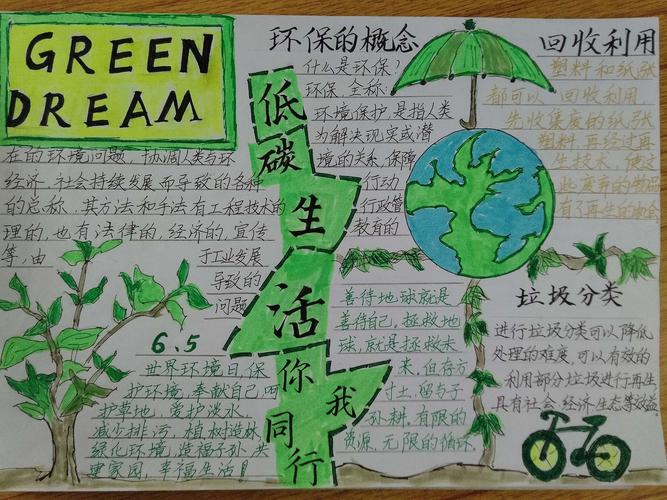 GREEN
DREAM
环保的概念
什么是环保?
环保 全称:
环境保护,是指人类
为解决现实或潜
在的环境问题,协调人类与环
境的关系,保障
经济.社会持续发展而导致的各种
行动
的总称.其方法和手法有工程技术的
行政管
理的,也有法律的,经济的,宣传
教育的
等,由
于工业发展
导致的
问题
低碳生活你我同行
回收利用
塑料和纸张
都可以回收利用,
先收集废的纸张
塑料,再经过再
生技术,使这
些废弃的物品
有了再生的机会
6.5
世界环境日,保
护环境,奉献自己,呵
护草地,爱护淡水,
减少排污,植树造林,
绿化环境,造福子孙,共
建家园,幸福生活!
善待地球就是
善待自己,拯救地
球,就是拯救未
来,但存方
寸土,留与子
孙耕.有限的
资源,无限的循环.
垃圾分类
进行垃圾分类可以降低
处理的难度,可以有效的
利用部分垃圾进行再生
具有社会.经济.生态等效益